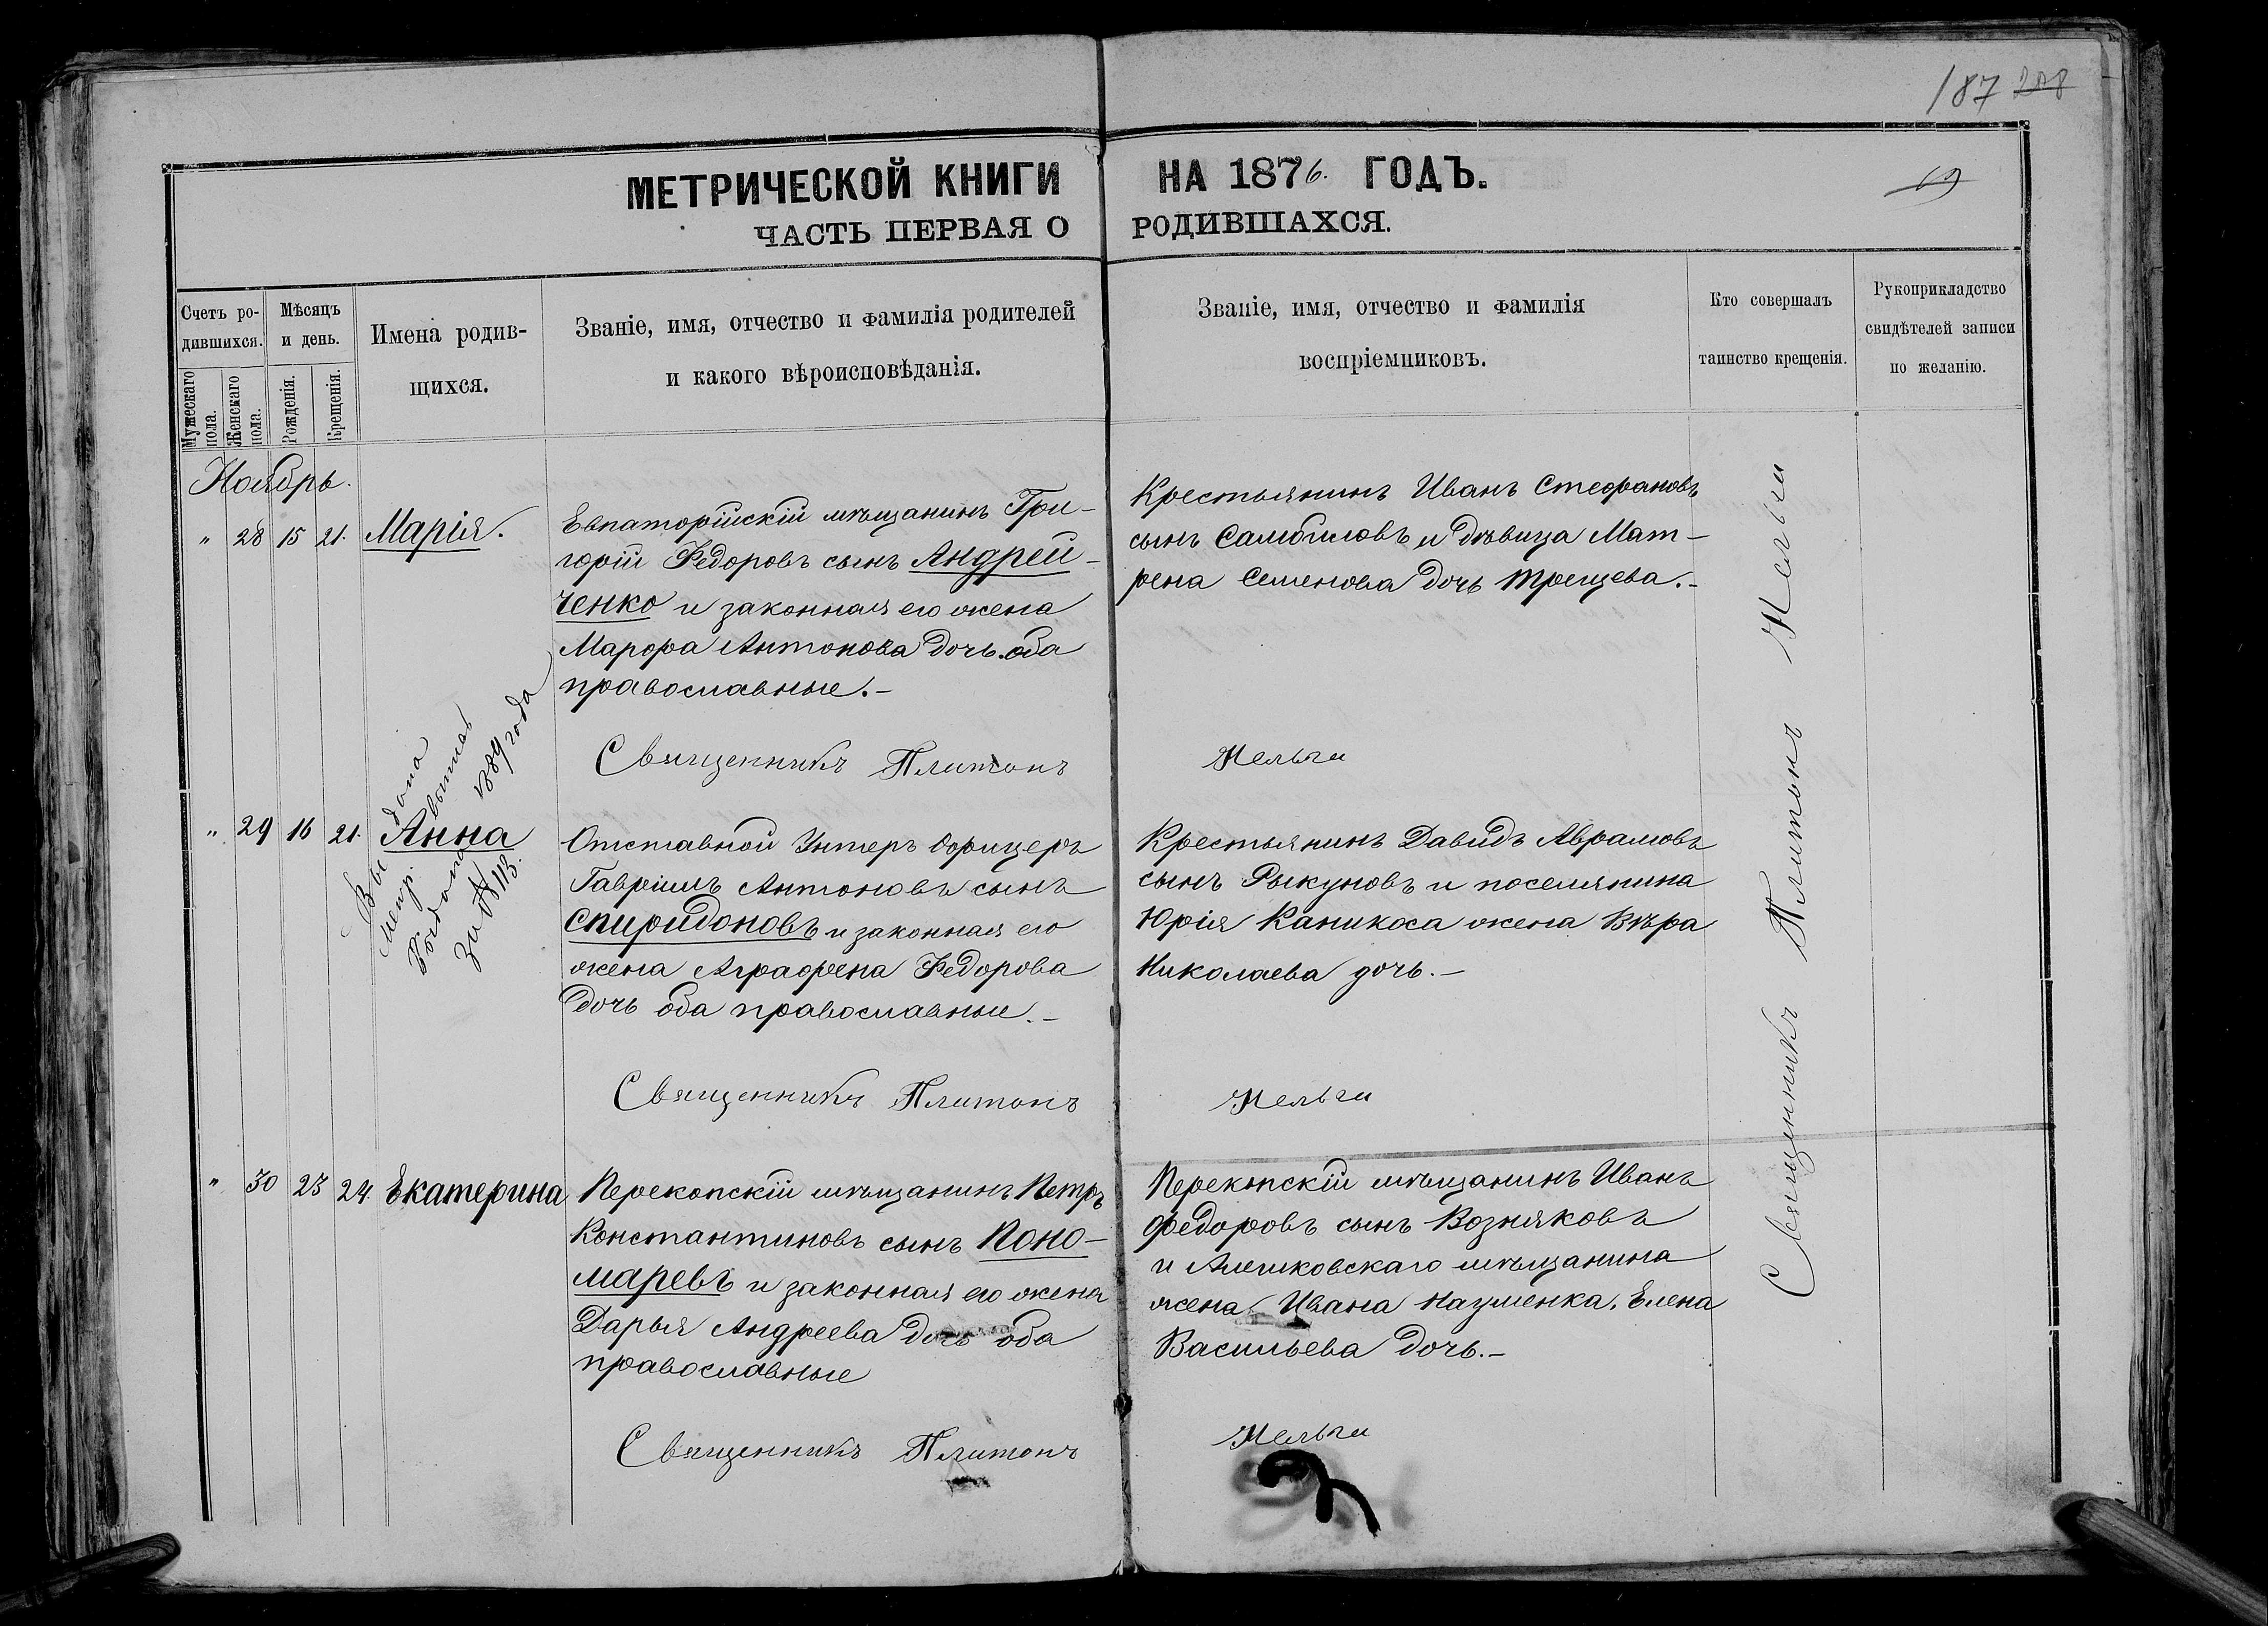 187 208
МЕТРИЧЕСКОЙ КНИГИ НА 1876. ГОДЪ.
69
ЧАСТЬ ПЕРВАЯ О РОДИВШАХСЯ.
Счетъ ро-
дившихся.
Мужескаго пола.
Женскаго пола.
Мѣсяцъ
и день.
Рожденія.
Крещенія.
Имена родив-
щихся.
Званіе, имя, отчество и фамилія родителей
и какого вѣроисповѣданія.
Званіе, имя, отчество и фамилія
воспріемниковъ.
Кто совершалъ
таинство крещенія.
Рукоприкладство
свидѣтелей записи
по желанію.
Ноябрь.
" 28 15 21. Марія.
Евпаторійскій мѣщанинъ Гри-
горій Федоровъ сынъ Андрей-
ченко и законная его жена
Марфа Антонова дочь оба
православные.-
Крестьянинъ Иванъ Стефановъ
сынъ Самбиловъ и дѣвица Мат-
рена Семенова дочь Трещева.-
Священникъ Плитонъ Нельги
" 29 16 21. Анна
Выдана
метр. выпись
1889 года
за № 113.
Отставной Унтеръ Офицеръ
Гавріилъ Антоновъ сынъ
Спиридоновъ и законная его
жена Аграфена Федорова
дочь оба православные.-
Крестьянинъ Давидъ Аврамовъ
сынъ Рыкуновъ и поселянина
Юрія Каникоса жена Вѣра
Николаева дочь.-
Священникъ Плитонъ Нельги
" 30 23 24. Екатерина
Перекопскій мѣщанинъ Петръ
Константиновъ сынъ Поно-
маревъ и законная его жена
Дарья Андреева дочь оба
православные
Перекопскій мѣщанинъ Иванъ
Федоровъ сынъ Возняковъ
и Алешковскаго мѣщанина
жена Ивана Науменка, Елена
Васильева дочь.-
Священникъ Плитонъ Нельги
Священникъ Плитонъ Нельги